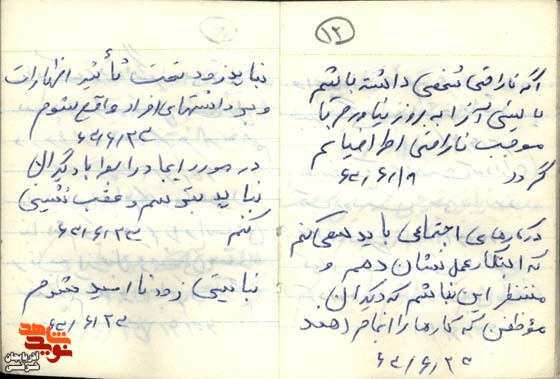 ۱۲
اگر ناراحتی شخصی داشته باشم
بایستی آنرا به روز نیاورم تا
موجب ناراحتی اطرافیانم
گردد ۶۲/۶/۱۹
در کارهای اجتماعی باید سعی کنم
که ابتکار عمل نشان دهم و
منتظر این نباشم که دیگران
موظفند که کارها را انجام دهند
۶۲/۶/۲۰
نباید زود تحت تأثیر اظهارات
و برداشتهای افراد واقع شوم
۶۲/۶/۲۳
در مورد ایجاد رابطه با دیگران
نباید بترسم و عقب نشینی
کنم ۶۲/۶/۲۳
نبایستی زود ناامید شوم
۶۲/۶/۲۳
نوید شاهد
آذربایجان شرقی